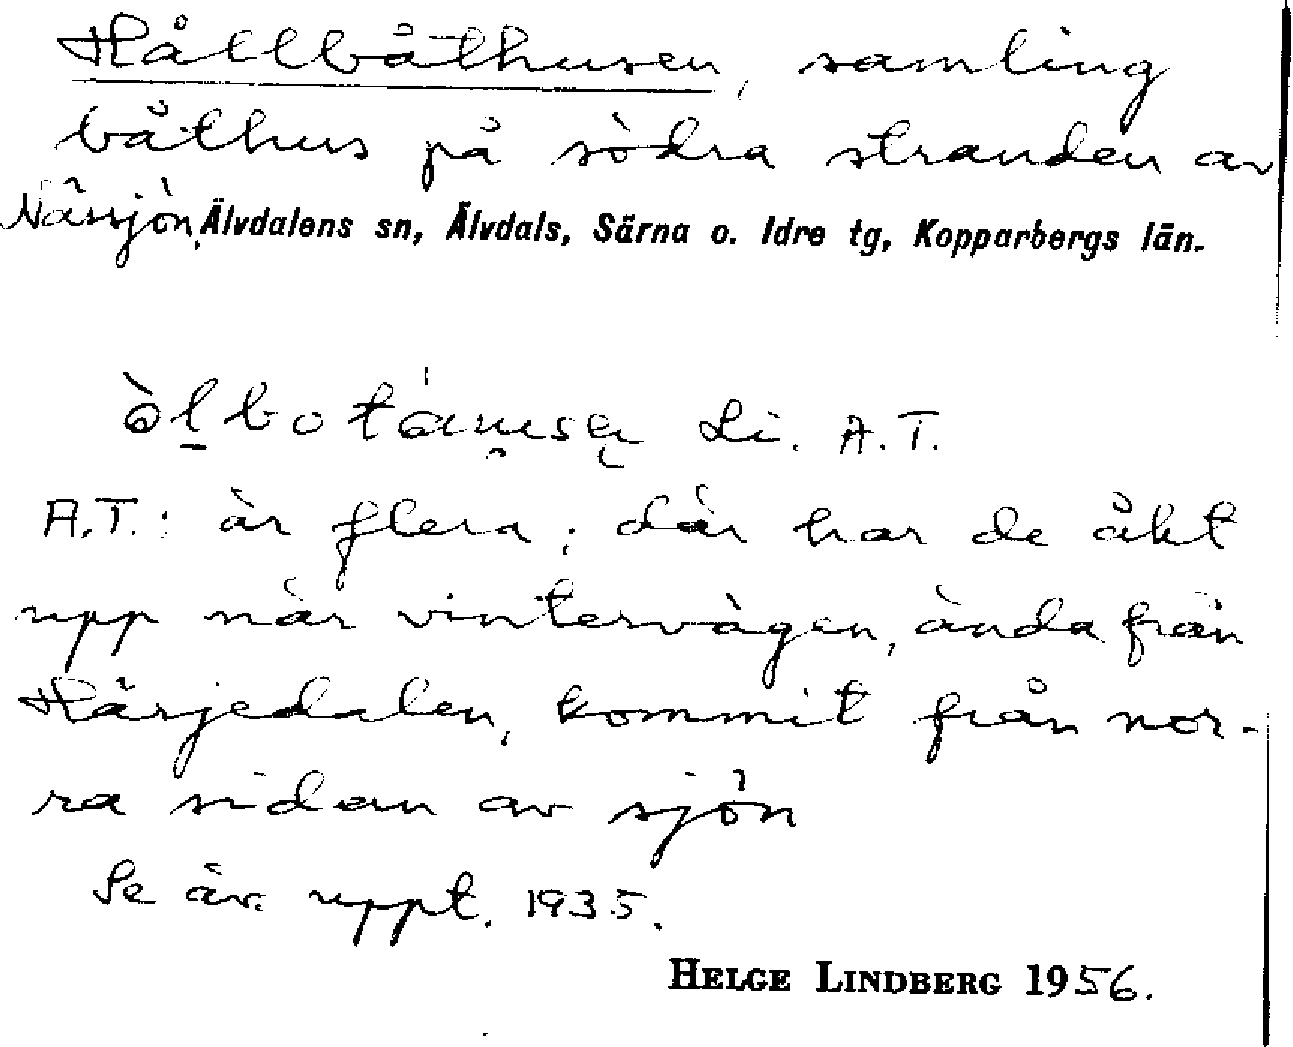 Hållbåthusen, samling
båthus på södra stranden av
Nässjön, Älvdalens sn, Älvdals, Särna o. Idre tg, Kopparbergs län.
Li. A.T.
A.T.: är flera; där har de åkt
upp när vintervägen, ända från
Härjedalen, kommit från nor-
ra sidan av sjön
Se äv. uppt. 1935.
HELGE LINDBERG 1956.